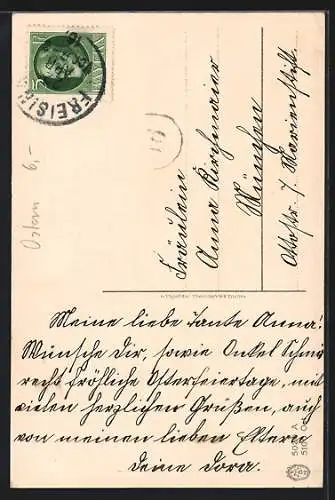 FREISING
5
Ostern 6,-
Fräulein
Anna Kirchmaier
München
Ottostr. 7. Marienstift.
Meine liebe Tante Anna!
Wünsche Dir, sowie Onkel
recht fröhliche Osterfeiertage, mit
vielen herzlichen Grüßen, auch
von meinen lieben Eltern
Deine Dora.